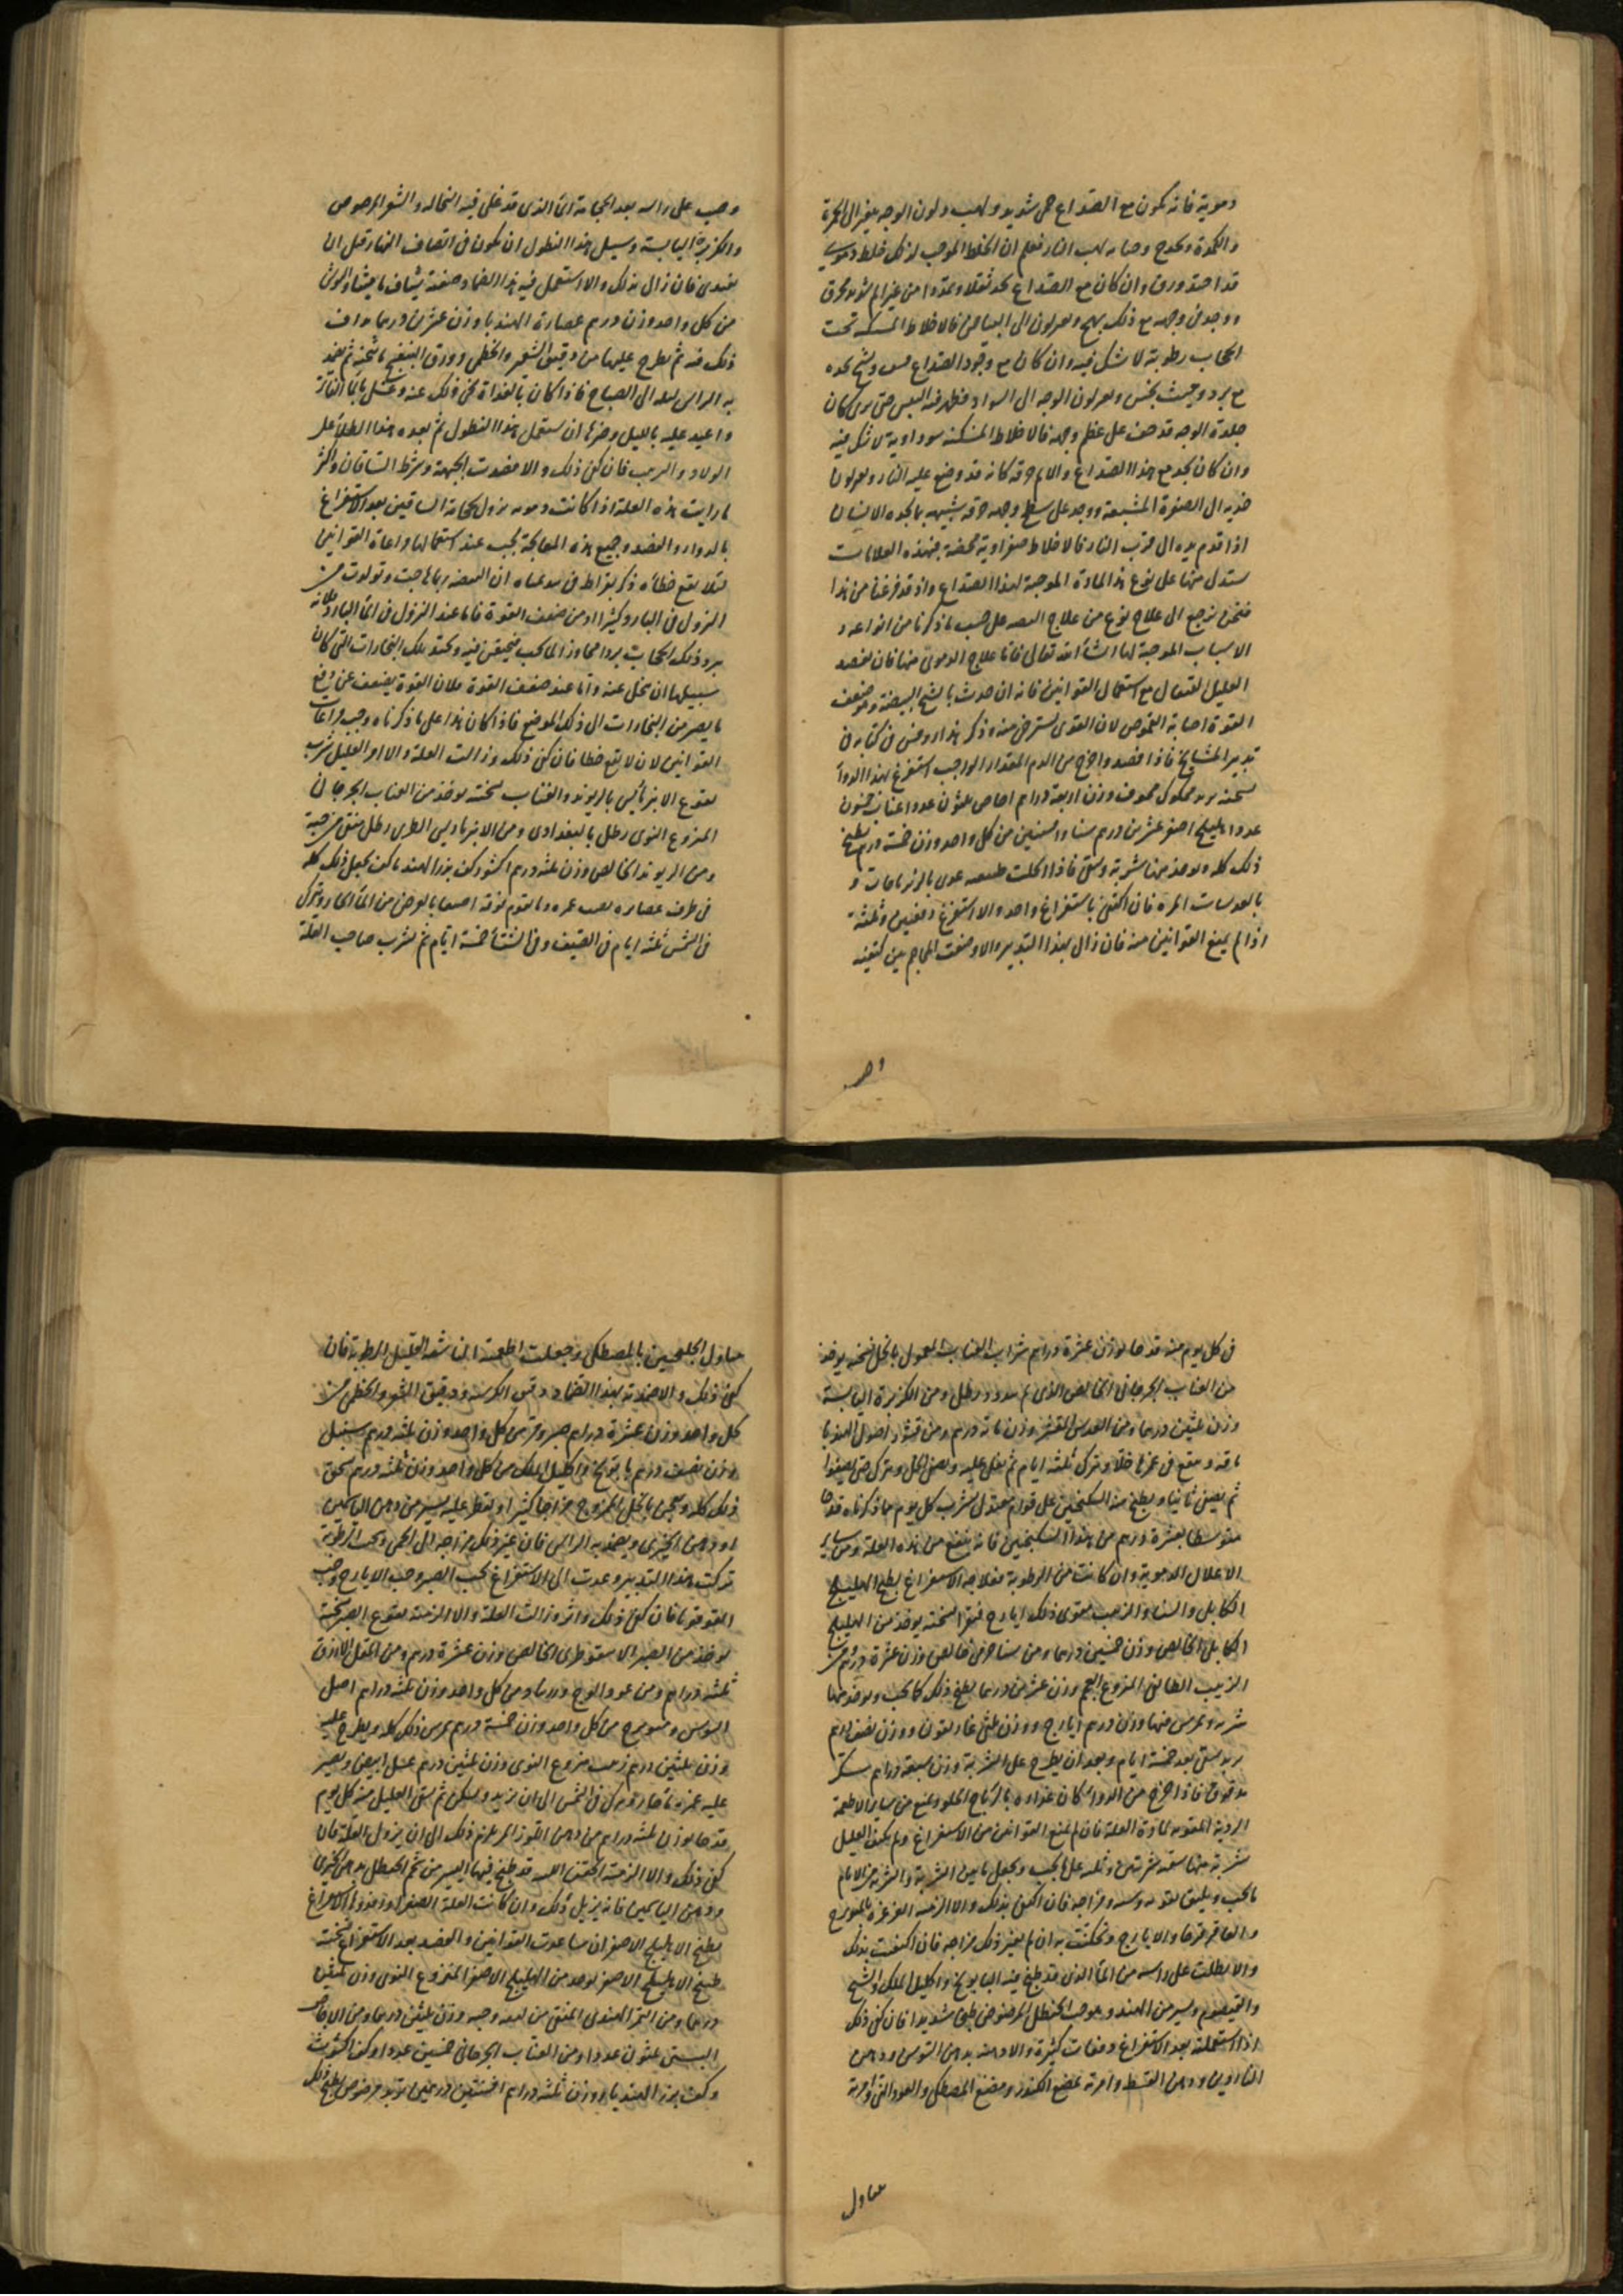 دموية فانه يكون مع الصداع حمى شديد ولهيب ولون الوجه يتغير الى الحمرة
والكمودة ويحدج وصاحبه لهب النار فيعلم ان الخلط الموجب لذلك خلط دموي
قد احتد ورق وان كان مع الصداع يجد ثقلا وتمددا من غير الم شديد محرق
ووجد في وجهه مع ذلك تهيج ويعلو لون الى البياض فالاخلاط المستكنه تحت
الحجاب رطوبة لا شك فيه وان كان مع وجود الصداع يبس وتشنج يجده
مع برد وجبت يحس ويعلو لون الوجه الى السواد فظهر فيه اليبس حتى يرى كان
جلدة الوجه قد جف على عظم وجهه فالاخلاط المستكنه سوداوية لا شك فيه
وان كان يجد مع هذا الصداع والالم حرقه كانه قد وضع عليه النار ويعلو لون
خديه الى الصفرة المشبعة ووجد على سطح وجهه حرقه شبيهه بما يجده الانسان
اذا قدم يده الى قرب النار فالاخلاط صفراوية محضة فبهذه العلامات
يستدل منها على نوع هذا المادة الموجبة لهذا الصداع واذ قد فرغنا من هذا
فنحن نرجع الى علاج نوع من علاج البيضه على حسب ما ذكرنا من انواعه و
الاسباب الموجبة لها ان شاء الله تعالى فاما علاج الدموي منها فان يفصد
العليل القيفال مع استعمال القوانين فانه ان حدث بالشيخ البيضة وهو ضعيف
القوة اصابة النقوص لان القوى تسترخي منه وذكر هذا روفس في كتابه في
تدبير المشايخ فاذا فصد واخرج من الدم المقدار الواجب استفرغ بهذا الدواء
نسخته تربد محكوك مجوف وزن اربعة دراهم اجاص ثلثون عددا عناب خمسون
عددا هليلج اصفر عشرين درهم سنا وافسنتين من كل واحد وزن خمسة درهم يطبخ
ذلك كله يوخذ منها شربة ويسقى فاذا انحلت طبيعته غدى بالزرباجات و
بالعدسات المرة فان اكتفى باستفراغ واحد والا استفرغ دفعتين وثلثة
اذا لم يمنع القوانين منه فان زال بهذا التدبير والا وضعت المحاجم بين كتفيه
وصب على راسه بعد الحجامة الماء الذي قد غلي فيه النخاله والشعير المرضوض
والكزبرة اليابسة وسبيل هذا النطول ان يكون في انتصاف النهار قبل ان
يتغدى فان زال بذلك والا استعمل فيه هذا الضماد وصفته شياف ماميثا والورش
من كل واحد وزن درهم عصارة الهندبا وزن عشرين درهما يداف
ذلك فيه ثم يطرح عليها من دقيق الشعير والخطمي وورق البنفسج ما يثخنه ثم يضمد
به الراس ليله الى الصباح فاذا كان بالغداة نحى ذلك عنه وغسل بالماء الفاتر
واعيد عليه بالليل وخيرها ان يستعمل هذا النطول ثم بعده هذا الطلاء على
الولاد والزبيب فان كفى ذلك والا فصدت الجبهة وشرط الساقان واكثر
ما رايت هذه العلة اذا كانت دمويه يزول بحجامة الساقين بعد الاستفراغ
بالدواء والفصد وجميع هذه المعالجة يجب عند استعمالها مراعاة القوانين
لئلا يقع خطاء ذكر بقراط في ان البيضه ربما هاجت وتولدت من
النزول في البارد كثيرا او من ضعف القوة فاما عند النزول في الماء البارد فلانه
يبرد ذلك الحجاب بردا مجاوزا لما يجب فيختنق فيه ويحتد تلك البخارات التي كان
سبيلها ان يتحلل عنه واما عند ضعف القوة فلان القوة يضعف عن دفع
ما يصير من البخارات الى ذلك الموضع فاذا كان هذا على ما ذكرناه وجب مراعات
القوانين لان لا يقع خطا فان كفى ذلك وزالت العلة والا امر العليل بشرب
نقوع الانبرباريس بالريوند والعناب نسخته يوخذ من العناب الجرجاني
المنزوع النوى رطل بالبغدادي ومن الانبرباريس الطري رطل منقى من حبه
ومن الريوند الخالص وزن ثلثه درهم اكشوث كف بزر الهندبا كف يجعل ذلك كله
في ظرف غضاره يصب غمره وما يقوم فوقه اصبعا بالعرض من الماء الحار ويترك
في الشمس ثلثه ايام في الصيف وفي الشتاء خمسة ايام ثم يشرب صاحب العلة
اهـ
في كل يوم منه قدحا بوزن عشرة دراهم شراب العناب المعمول بالخل نسخته يوخذ
من العناب الجرجاني الخالص الذي لم يدود رطل ومن الكزبرة اليابسة
وزن ثلثين درهما ومن العدس المقشر وزن ماته درهم ومن قشور اصول الهندبا
باقه وينقع في غمرها خلا ويترك ثلثه ايام ثم يغلى عليه ويصفى الخل ويترك حتى يصفوا
ثم يصفى ثانيا ويطبخ منه السكنجبين على قوام معتدل يشرب كل يوم مما ذكرناه قدحا
متوسطا بعشرة درهم من هذا السكنجبين فانه ينفع من هذه العلة ومن سائر
الاعلال الدموية وان كانت من الرطوبة فعلاجه الاستفراغ بطبخ الهليلج
الكابلي والسنا والزبيب مقوى ذلك ايارج فيقرا نسخته يوخذ من الهليلج
الكابلي الخالص وزن خمسين درهما ومن سنا حرمي خالص وزن عشرة درهم ومن
الزبيب الطائفي المنزوع العجم وزن عشرين درهما يطبخ ذلك كما يجب ويوخذ منها
شربه ويمرس فيها وزن درهم ايارج ووزن ثلثي غاريقون ووزن نصف درهم
تربد يسقى بعد خمسة ايام وبعد ان يطرح على الشربة وزن سبعة دراهم سكر
مدقوق فاذا اخرج من الدواء كان غذاوه بالزرباج الحلو ويمنع من سائر الاطعمة
الردية المقويه لمادة العلة فان لم تمنع القوانين من الاستفراغ ولم يكف العليل
شربة منها سقيه شربتين وثلثه على ما يجب ويجعل ما بين الشربة والشربة من الايام
ما يجب ويليق بقوته وسنه ومزاجه فان اكتفى بذلك والا الزمته الغرغرة بالمويزج
والعاقرقرحا والايارج وتمكنت به ان لم يغير ذلك مزاجه فان اكتفت بذلك
والا نطلت على راسه من الماء الذي قد طبخ فيه البابونج واكليل الملك والشيح
والقيصوم ويسير من الهندبا وحب الحنطل المرضوض طبخا شديدا فان كفى ذلك
اذا استعملته بعد الاستفراغ دفعات كثيرة والا دهنته بدهن السوسن ودهن
الناردين ودهن القسط وامرته بمضغ الكندر ومضغ المصطكى والعود الني وامرته
تناول
تناول الجلنجبين بالمصطكى وجعلت اطعمته الناشفة القليل الرطوبة فان
كفى ذلك والا ضمدته بهذا الضماد دقيق الكرسنه ودقيق الشعير والخطمي من
كل واحد وزن عشرة دراهم صبر ومر من كل واحد وزن ثلثه درهم سنبل
وزن نصف درهم بابونج واكليل الملك من كل واحد وزن ثلثه درهم يسحق
ذلك كله ويعجن بالخل الممزوج مزاجا كثيرا ويقطر عليه يسير من دهن الياسمين
او دهن الخيري ويضمد به الراس فان غير ذلك مزاجه الى الحمى وجب الرطوبة
تركت هذا التدبير وعدت الى الاستفراغ بحب الصبر وحب الايارج وحب
القوقويا فان كفى ذلك واثر وزالت العلة والا الزمته نقوع الصبر نسخته
يوخذ من الصبر الاسقوطري الخالص وزن عشرة درهم ومن المقل الازرق
ثلثه دراهم ومن عود الوج ودرونج من كل واحد وزن ثلثه دراهم اصل
السوسن ومويزج من كل واحد وزن خمسة درهم يمرس ذلك كله ويطرح عليه
وزن ثلثين درهم زبيب منزوع النوى وزن ثلثين درهم عسل ابيض ويصب
عليه غمره ماء حار ويترك في الشمس الى ان يزيد ويسكن ثم يسقى العليل منه كل يوم
قدحا بوزن ثلثه دراهم من دهن اللوز المر يلزم ذلك الى ان يزول العلة فان
كفى ذلك والا الزمته الحقن اللينه قد طبخ فيها اليسير من شحم الحنظل بدهن الخيري
ودهن الياسمين فانه يزيل ذلك وان كانت العلة الصفراء ومزورها الاستفراغ
بطبخ الاهليلج الاصفر ان ساعدت القوانين والفصد بعد الاستفراغ نسخته
طبخ الاهليلج الاصفر يوخذ من الهليلج الاصفر المنزوع النوى وزن ثلثين
درهما ومن التمر الهندي المنقى من ليفه وحبه وزن ثلثين درهما ومن الاجاص
البستي ثلثون عددا ومن العناب الجرجاني خمسين عددا وكف اكشوث
وكف بزر الهندبا وزن ثلثه دراهم افسنتين درهمين تربد مرضوض يطبخ ذلك